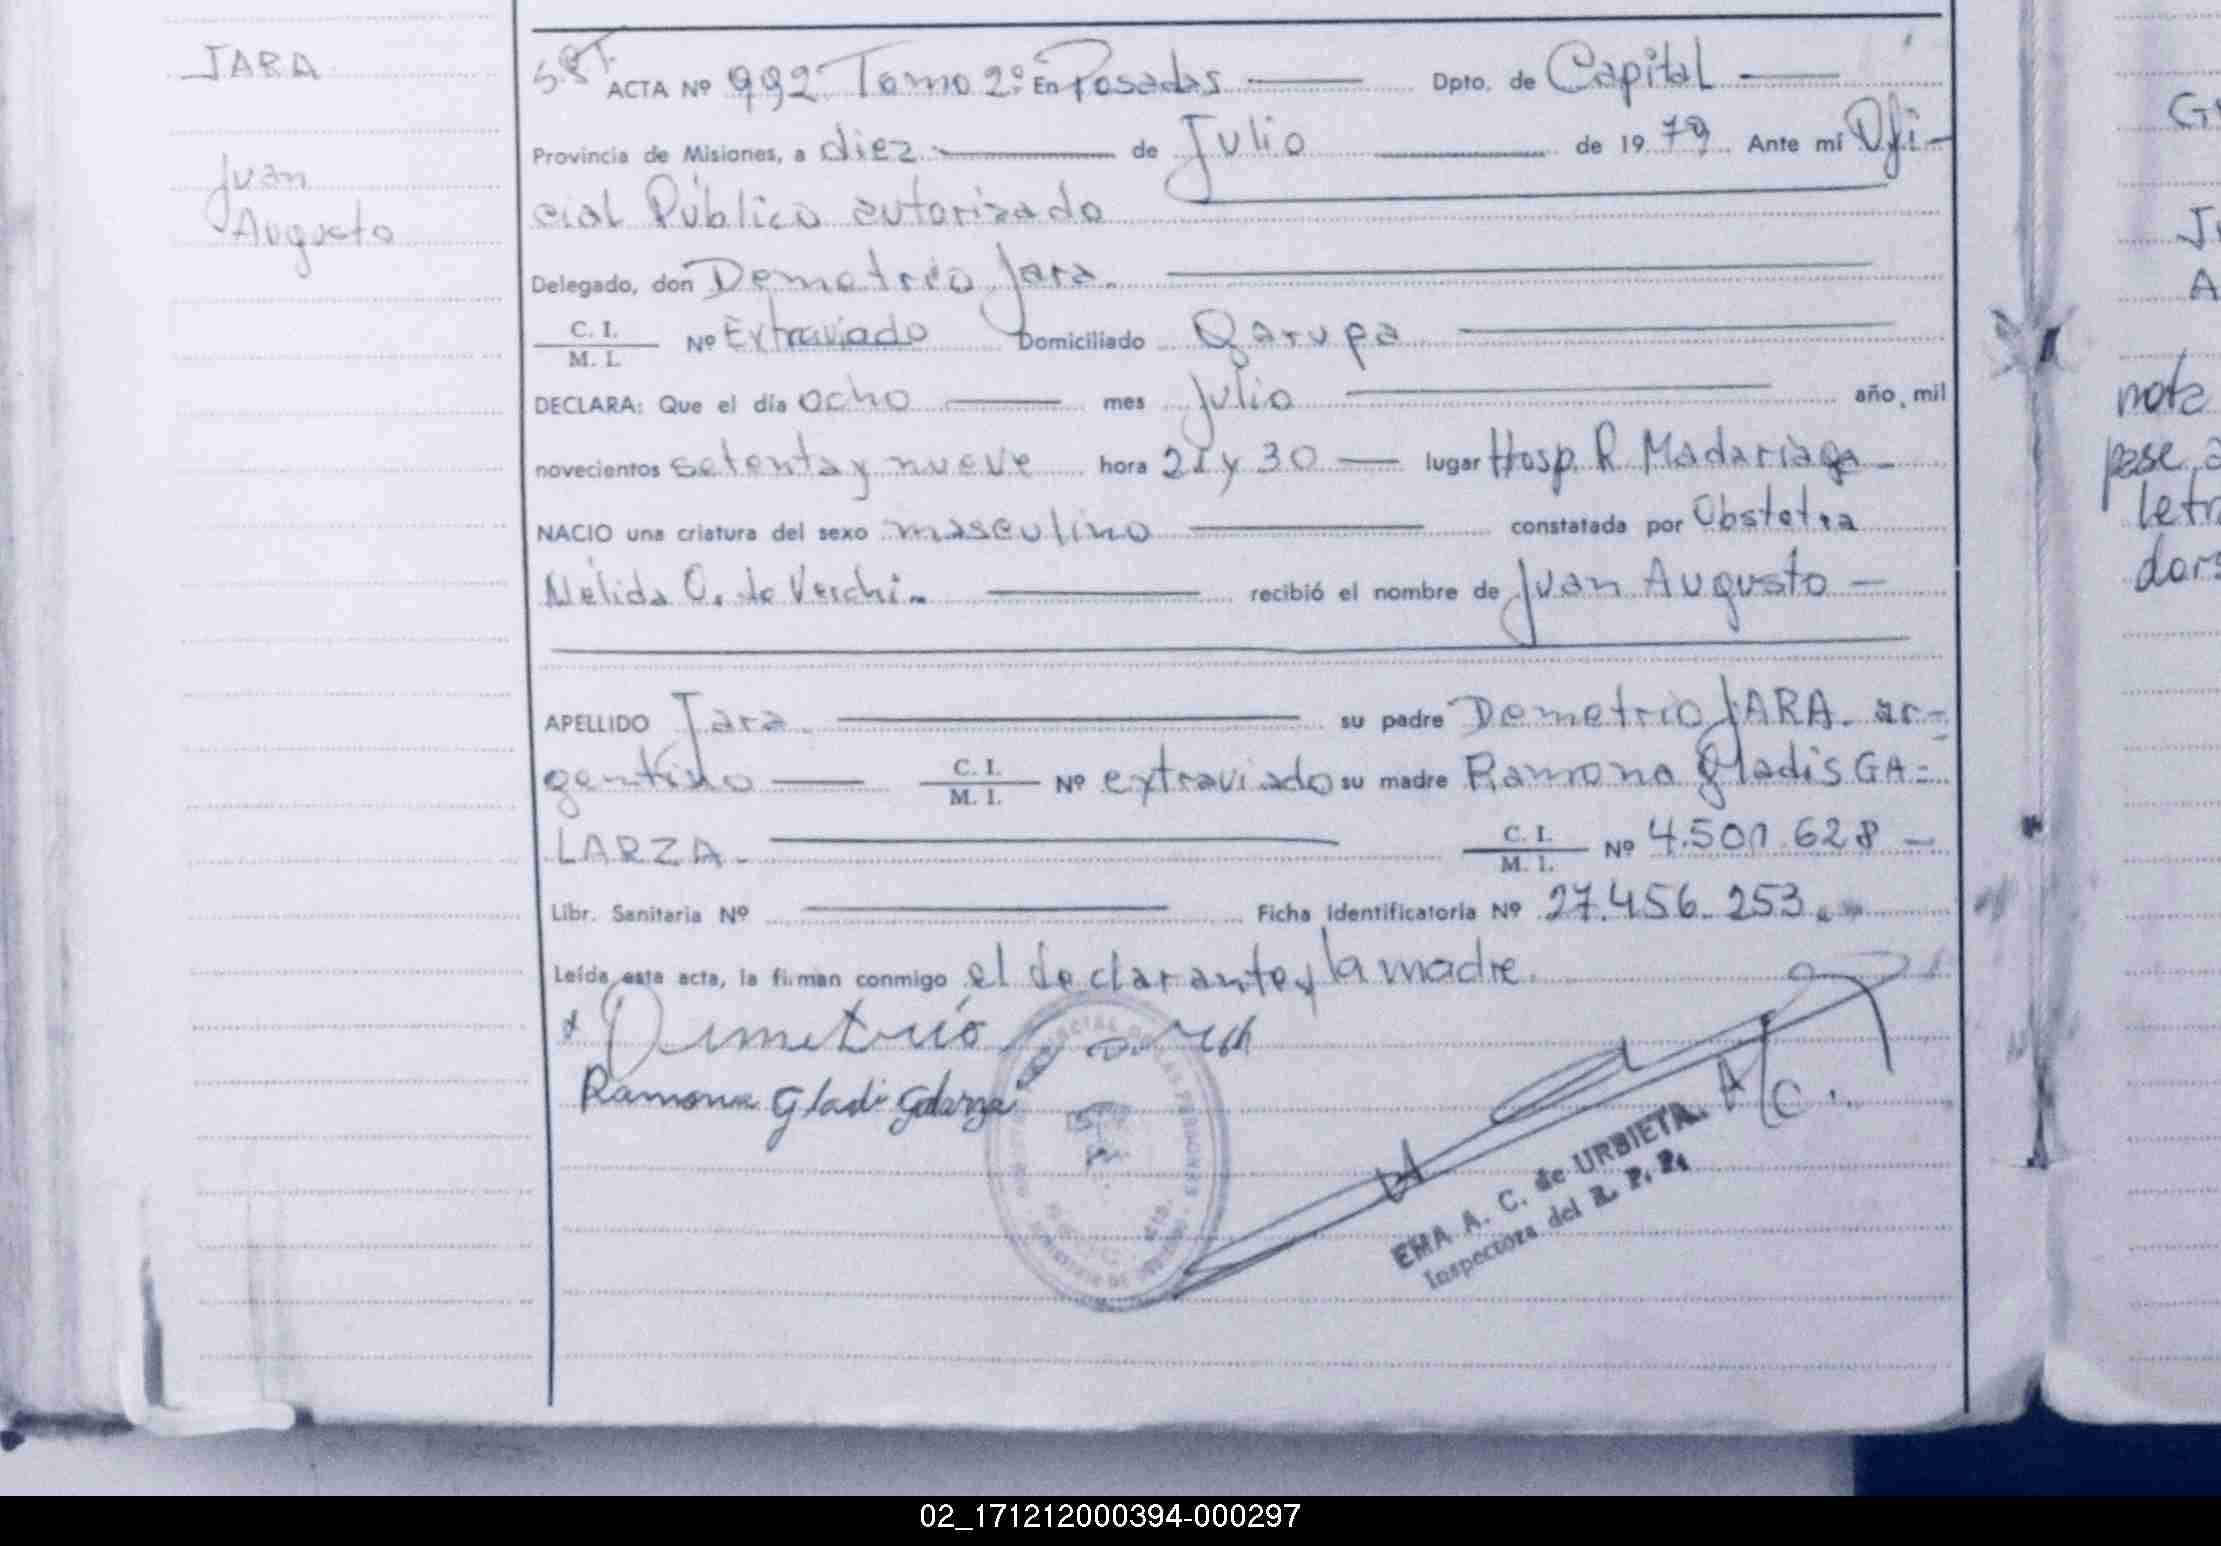 JARA
Juan
Augusto
ACTA Nº 992 Tomo 2º En Posadas Dpto. de Capital
Provincia de Misiones, a diez de Julio de 1979 Ante mí Ofi-
cial Público autorizado
Delegado, don Demetrio Jara.
C. I.
M. I. Nº Extraviado Domiciliado Garupa
DECLARA: Que el día ocho mes Julio año, mil
novecientos setenta y nueve hora 21 y 30 lugar Hosp. R. Madariaga
NACIO una criatura del sexo masculino constatada por Obstetra
Nélida O. de Verchi. recibió el nombre de Juan Augusto
APELLIDO Jara su padre Demetrio JARA. ar-
gentino C. I.
M. I. Nº extraviado su madre Ramona Gladis GA=
LARZA. C. I.
M. I. Nº 4.501.628
Libr. Sanitaria Nº Ficha Identificatoria Nº 27.456.253.
Leída esta acta, la firman conmigo el declarante y la madre.
Demetrio Jara
Ramona Gladi Galarza
A/C.
EMA A. C. de URBIETA
Inspectora del R. P. P.
nota
pase a
letr
dors
02_171212000394-000297